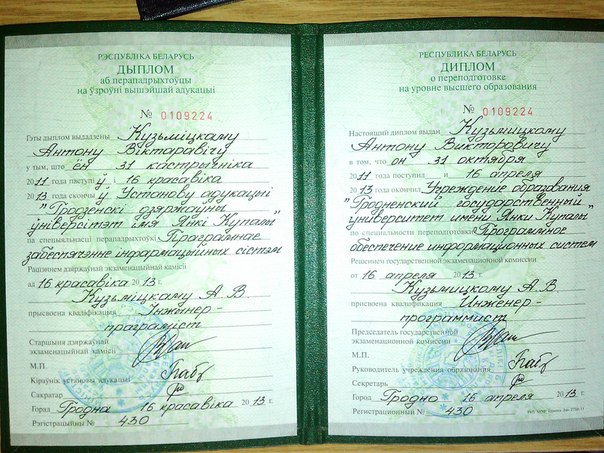 РЭСПУБЛІКА БЕЛАРУСЬ
ДЫПЛОМ
аб перападрыхтоўцы
на ўзроўні вышэйшай адукацыі
№ 0109224
Гэты дыплом выдадзены Кузьміцкаму
Антону Віктаравічу
у тым, што ён 31 кастрычніка
2011 года паступіў ў 16 красавіка
2013 года скончыў Установу адукацыі
"Гродзенскі дзяржаўны
ўніверсітэт імя Янкі Купалы"
па спецыяльнасці перападрыхтоўкі Праграмнае
забеспячэнне інфармацыйных сістэм
Рашэннем дзяржаўнай экзаменацыйнай камісіі
ад 16 красавіка 2013 г.
Кузьміцкаму А В
прысвоена кваліфікацыя Інжэнер-
праграміст
Старшыня дзяржаўнай
экзаменацыйнай камісіі
М.П.
Кіраўнік установы адукацыі
Сакратар
Горад Гродна 16 красавіка 2013 г.
Рэгістрацыйны № 430
РЕСПУБЛИКА БЕЛАРУСЬ
ДИПЛОМ
о переподготовке
на уровне высшего образования
№ 0109224
Настоящий диплом выдан Кузьмицкому
Антону Викторовичу
в том, что он 31 октября
2011 года поступил и 16 апреля
2013 года окончил Учреждение образования
"Гродненский государственный
университет имени Янки Купалы"
по специальности переподготовки Программное
обеспечение информационных систем
Решением государственной экзаменационной комиссии
от 16 апреля 2013 г.
Кузьмицкому А В
присвоена квалификация Инженер-
программист
Председатель государственной
экзаменационной комиссии
М.П.
Руководитель учреждения образования
Секретарь
Город Гродно 16 апреля 2013 г.
Регистрационный № 430